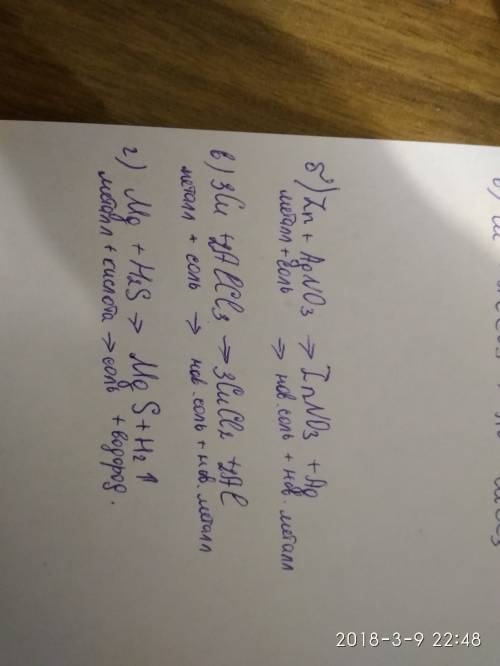 б) Zn + AgNO3 → ZnNO3 + Ag
металл + соль → нов. соль + нов. металл
в) 3Cu + 2AlCl3 → 3CuCl2 + 2Al
металл + соль → нов. соль + нов. металл
г) Mg + H2S → MgS + H2↑
металл + кислота → соль + водород.
2018-3-9 22:48